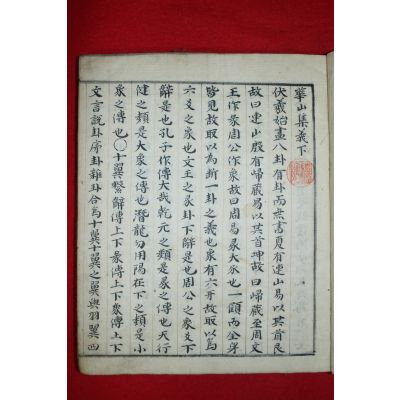 華山集義下
伏羲始畫八卦有卦而無書夏有連山易以其首艮
故曰連山殷有歸藏易以其首坤故曰歸藏至周文
王作彖周公作象故曰周易彖大豕也一頭而全身
皆見故取以為斷一卦之義也象有六牙故取以為
六爻之象也文王之彖卦下辭是也周公之象爻下
辭是也孔子作傳大哉乾元之類是彖之傳也天行
健之類是大象之傳也潛龍勿用陽在下之類是小
象之傳也○十翼繫辭傳上下彖傳上下象傳上下
文言說卦序卦雜卦合為十翼十翼之翼與羽翼西